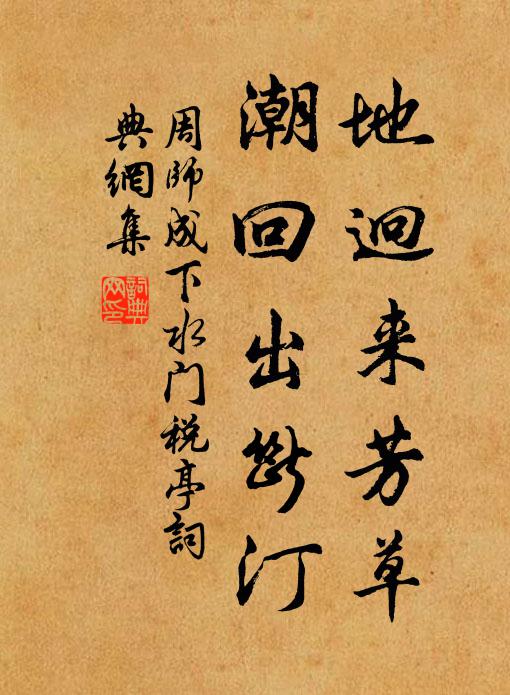 地迥来芳草
潮回出断汀
周師成下水门税亭詞
典網集
詞典網印